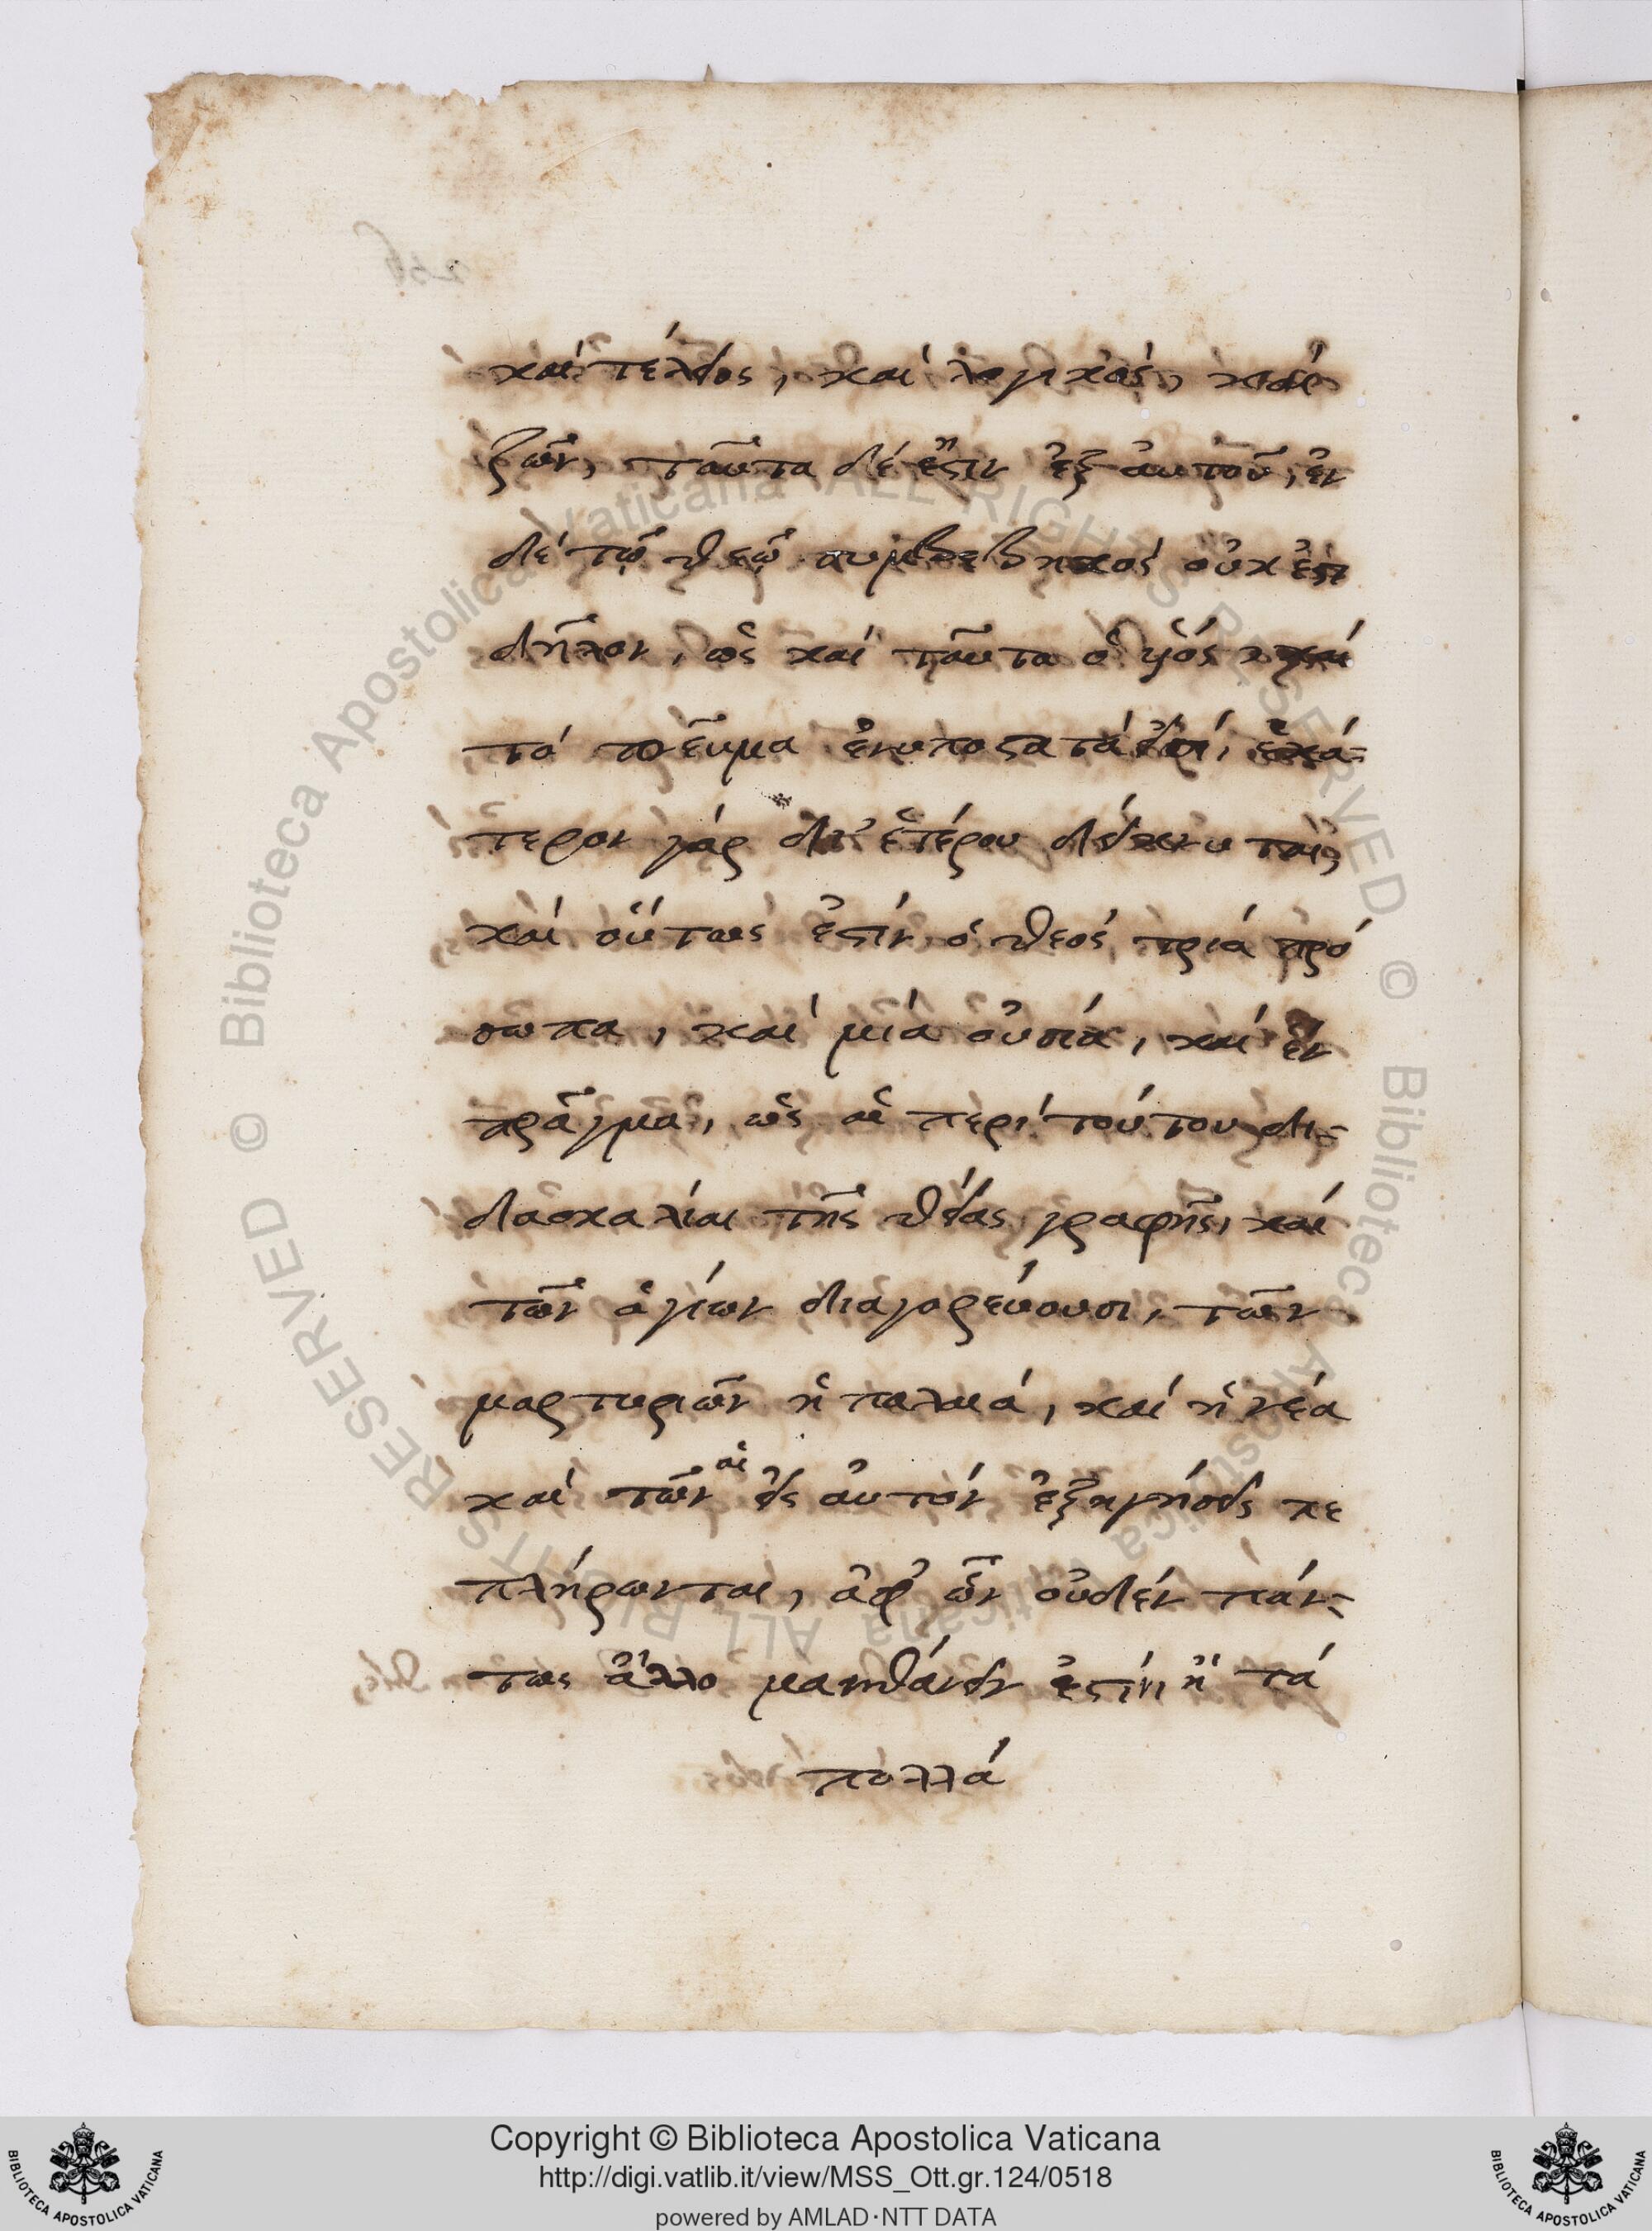 καί τέλειος, καί λογικός, καί
ζῶν, ταῦτα δέ ἐστιν ἐξ αὐτοῦ, ἐν
δέ τῷ θεῷ συμβεβηκός οὐκ ἔστι
δῆλον, ὡς καί ταῦτα ὁ υἱός καί
τό πνεῦμα ἐνυπόστατά εἰσί, ἑκά-
τερον γάρ δι' ἑτέρου δείκνυται,
καί οὕτως ἐστίν ὁ θεός τρία πρό
σωπα, καί μία οὐσία, καί ἕν
πρᾶγμα, ὡς αἱ περί τούτου δι-
δασκαλίαι τῆς θείας γραφῆς, καί
τῶν ἁγίων διαγορεύουσι, τῶν
μαρτυριῶν ἡ παλαιά, καί ἡ νέα
καί τῶν αἱ εἰς αὐτόν ἐξηγήσεις πε
πλήρωνται, ἀφ' ὧν οὐδέν πάν-
τως ἄλλο μανθάνειν ἐστίν, ἤ τά
πολλά
Copyright © Biblioteca Apostolica Vaticana
http://digi.vatlib.it/view/MSS_Ott.gr.124/0518
powered by AMLAD·NTT DATA
BIBLIOTECA APOSTOLICA VATICANA
BIBLIOTECA APOSTOLICA VATICANA
© Biblioteca Apostolica Vaticana ALL RIGHTS RESERVED © Biblioteca Apostolica Vaticana ALL RIGHTS RESERVED